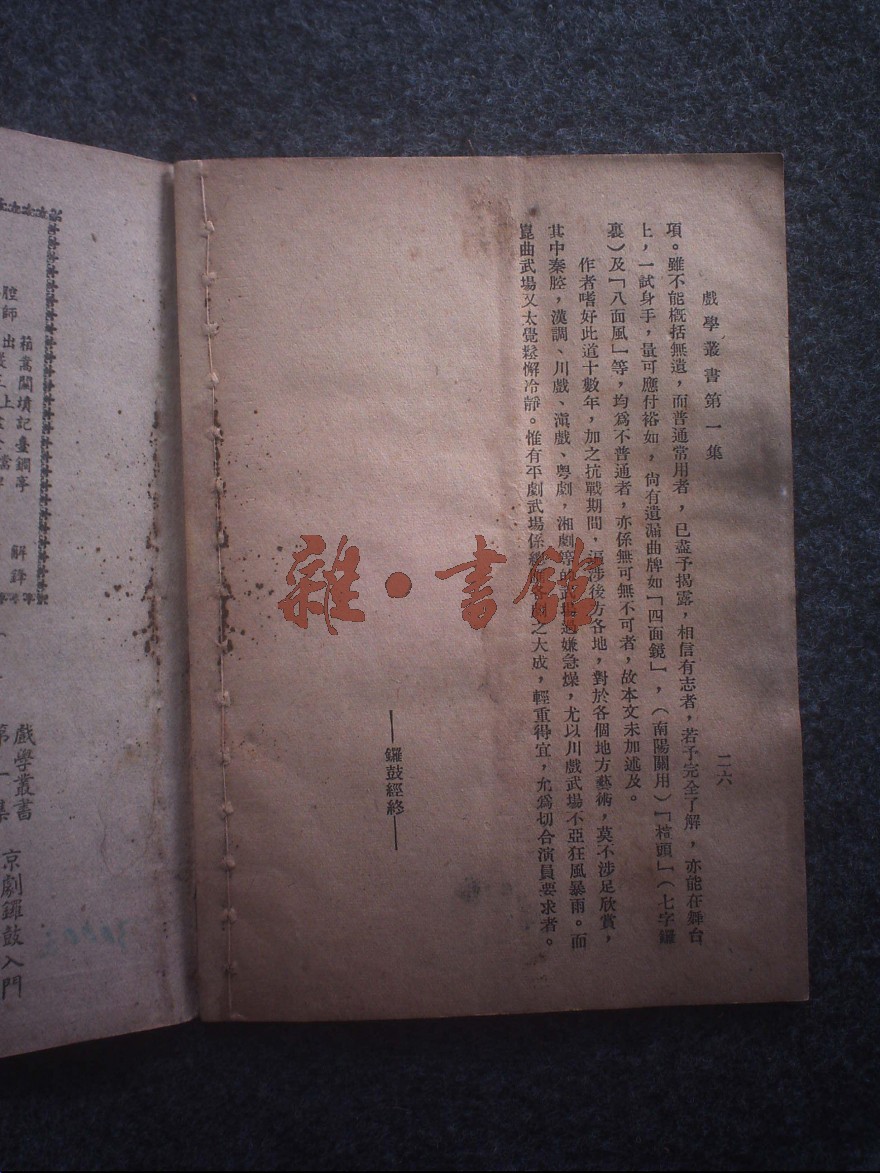 戲學叢書第一集
二六
項。雖不能概括無遺，而普通常用者，已盡予揭露，相信有志者，若予完全了解，亦能在舞台
上，一試身手，量可應付裕如，尚有遺漏曲牌如「四面鏡」，（南陽關用）「梢頭」（七字鑼
裏）及「八面風」等，均爲不普通者，亦係無可無不可者，故本文未加述及。
作者嗜好此道十數年，加之抗戰期間，涉後方各地，對於各個地方藝術，莫不涉足欣賞，
其中秦腔，漢調、川戲、滇戲、粤劇，湘劇武場嫌急燥，尤以川戲武場不亞狂風暴雨。而
崑曲武場又太覺鬆懈冷靜。惟有平劇武場係之大成，輕重得宜，允爲切合演員要求者。
—鑼鼓經終—
雜·書館
戲學叢書
第一集
京劇鑼鼓入門